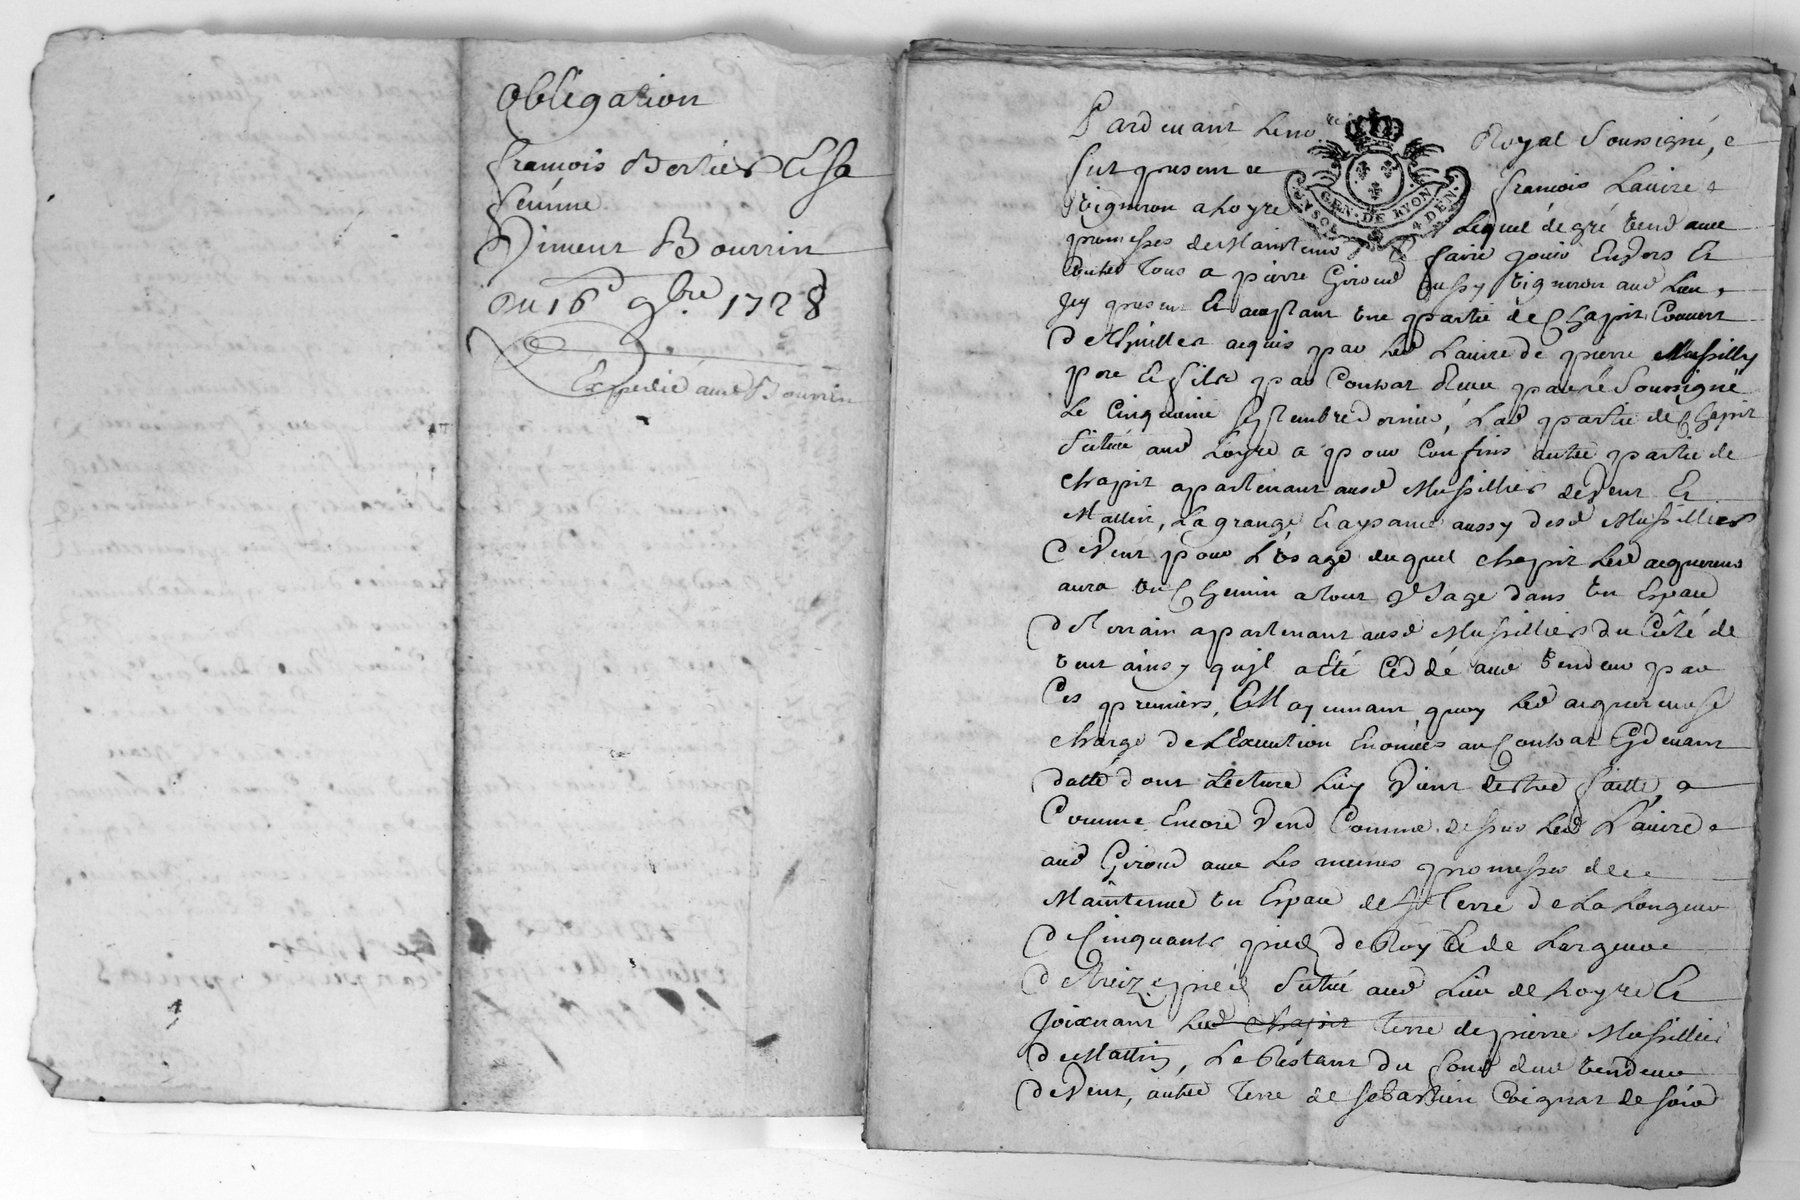 Obligation
françois Bertier & Sa
femme
Vincent Bourrin
Du 16e 9bre 1728
Expedié aud Bourrin
Pardevant Le no^re Royal Soussigné,
fut present françois Lavire
Vigneron a Loyre Lequel de gré vend avec
promesses de Maintenir & faire jouir Envers Et
Contre Tous a pierre Giroud aussy vigneron aud Lieu
jcy present Et acceptant Une partie de Chapit Couvert
De Thuilles acquis par Led Lavire de pierre Mussilly
pere Et fils par Contrat Receu par Le Soussigné
Le Cinquieme septembre dernier, Lad partie de Chapit
Située aud Loyre a pour Confins autre partie de
Chapit apartenant ausd Mussilliers de Vent Et
Mattin, La grange Et aysance aussy desd Mussilliers
De Vent pour L'Usage duquel chapit Led acquereur
aura Un Chemin a tout Usage dans Un Espace
De Terrain apartenant ausd Mussilliers Du Côté de
Vent ainsy qu'jl a Eté Ceddé aud Vendeur par
Ces premiers, Et Moyennant quoy Led acquereur se
charge De L'Execution Enoncées au Contrat Cydevant
datté dont Lecture Luy Vient destre faitte,
Comme Encore Vend Comme dessus Led Lavire
aud Giroud avec Les memes promesses de
Maintenue Un Espace de Terre De La Longueur
De Cinquante pieds De Roy Et de Largeur
De Treize pieds Situé aud Lieu de Loyre Et
Joignant Led chapit Terre de pierre Mussillier
De Mattin, Le Restant Du fond dud Vendeur
De Vent, autre Terre de Sebastien Voignat de soir
GEN·DE LYON
4 DEN